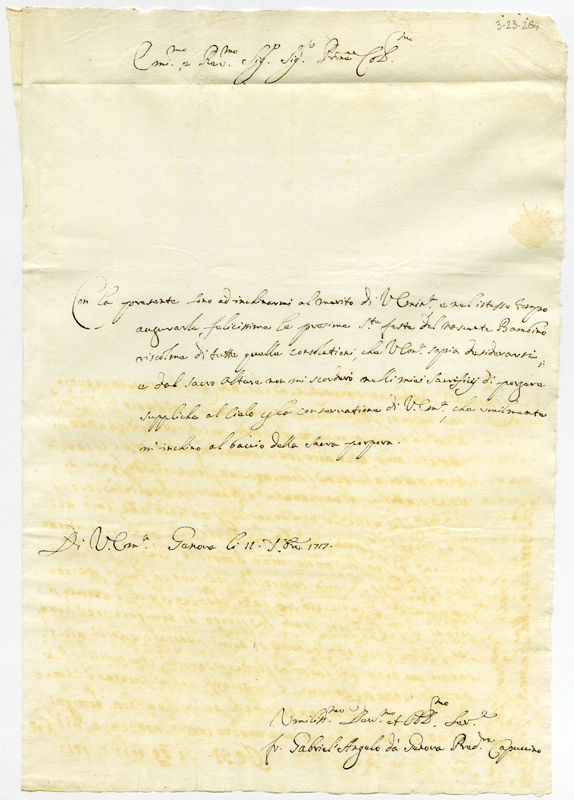 3-23-264
Em.mo e Rev.mo Sig.r Sig.r Prne Col.mo
Con la presente sono ad inchinarmi al merito di V. Emin.a e nell'istesso tempo
augurarle felicissime le prossime S.te feste del Nascente Bambino
riccolme di tutte quelle consolationi, che V. Em.a sapia desiderarsi;
e dal Sacro Altare non mi scorderò nelli miei Sacrifizij di porgere
suppliche al Cielo p la conservatione di V. Em.a, che umilmente
mi inchino al baccio della Sacra porpora.
Di V. Em.a Genova li 11. Xbre 1717.
Umiliss.mo Dev.mo et Obb.mo Ser.e
fr. Gabriel' Angelo da Genova Pred.re Capuccino